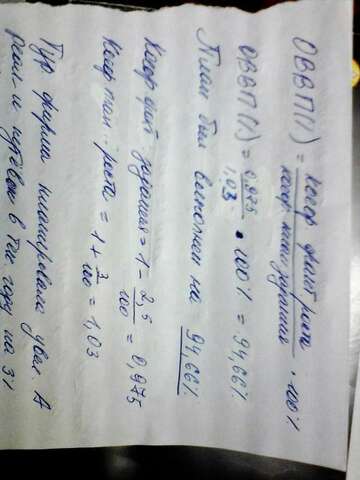 ОВВП(%) = коэф факт роста / коэф план задания • 100%
ОВВП(%) = 0,975 / 1,03 • 100% = 94,66%
План был выполнен на 94,66%
Коэф факт задания = 1 - 2,5/100 = 0,975
Коэф план роста = 1 + 3/100 = 1,03
Тур фирма планировала увел. А
реал и путёвок в тек. году на 3%